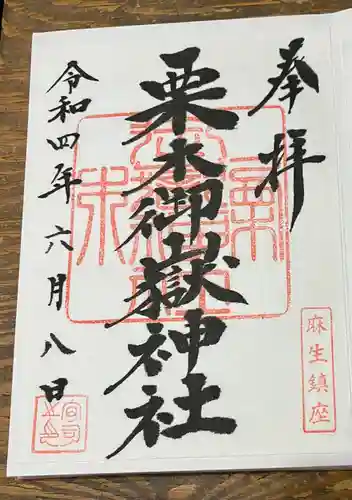 奉拝
麻生鎮座
栗木御嶽神社
令和四年六月八日